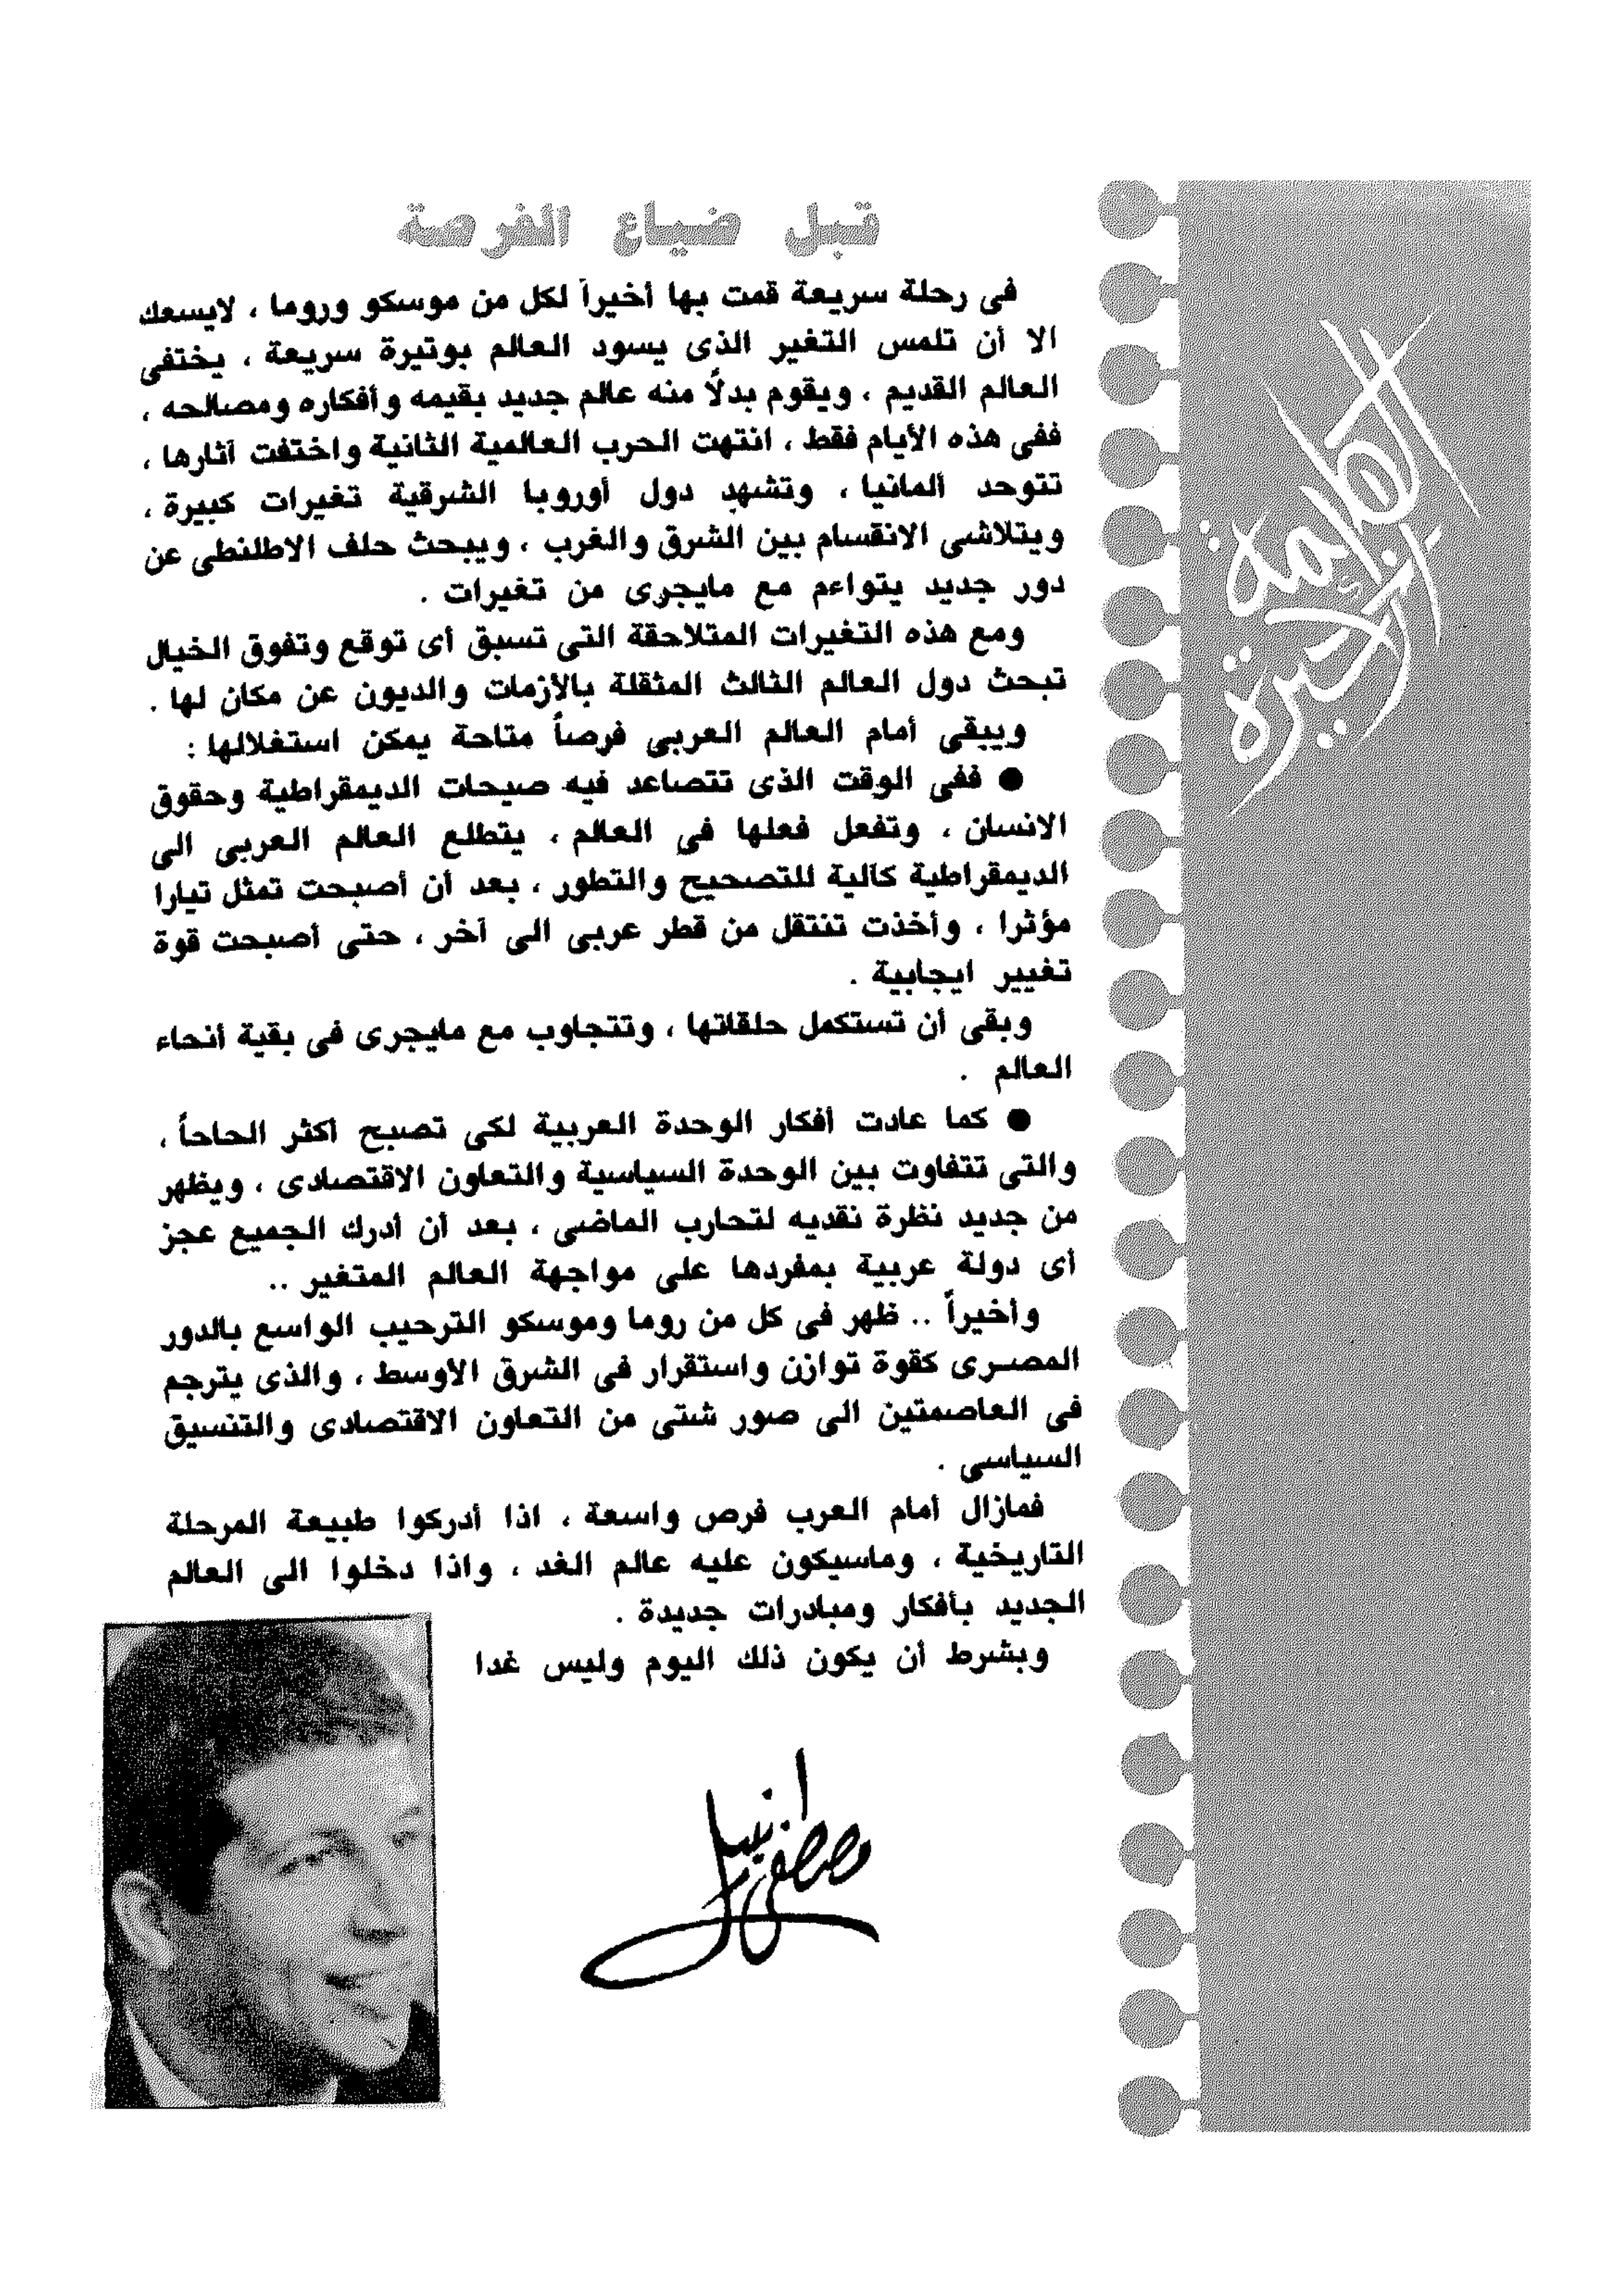 الكلمة
الأخيرة
قبل ضياع الفرصة
فى رحلة سريعة قمت بها أخيراً لكل من موسكو وروما ، لايسعك
الا أن تلمس التغير الذى يسود العالم بوتيرة سريعة ، يختفى
العالم القديم ، ويقوم بدلاً منه عالم جديد بقيمه وأفكاره ومصالحه ،
ففى هذه الأيام فقط ، انتهت الحرب العالمية الثانية واختفت آثارها ،
تتوحد ألمانيا ، وتشهد دول أوروبا الشرقية تغيرات كبيرة ،
ويتلاشى الانقسام بين الشرق والغرب ، ويبحث حلف الاطلنطى عن
دور جديد يتواءم مع مايجرى من تغيرات .
ومع هذه التغيرات المتلاحقة التى تسبق أى توقع وتفوق الخيال
تبحث دول العالم الثالث المثقلة بالأزمات والديون عن مكان لها .
ويبقى أمام العالم العربى فرصاً متاحة يمكن استغلالها :
● ففى الوقت الذى تتصاعد فيه صيحات الديمقراطية وحقوق
الانسان ، وتفعل فعلها فى العالم ، يتطلع العالم العربى الى
الديمقراطية كآلية للتصحيح والتطور ، بعد أن أصبحت تمثل تيارا
مؤثرا ، وأخذت تنتقل من قطر عربى الى آخر ، حتى أصبحت قوة
تغيير ايجابية .
وبقى أن تستكمل حلقاتها ، وتتجاوب مع مايجرى فى بقية أنحاء
العالم .
● كما عادت أفكار الوحدة العربية لكى تصبح أكثر الحاحاً ،
والتى تتفاوت بين الوحدة السياسية والتعاون الاقتصادى ، ويظهر
من جديد نظرة نقديه لتحارب الماضى ، بعد أن أدرك الجميع عجز
أى دولة عربية بمفردها على مواجهة العالم المتغير ..
وأخيراً .. ظهر فى كل من روما وموسكو الترحيب الواسع بالدور
المصرى كقوة توازن واستقرار فى الشرق الأوسط ، والذى يترجم
فى العاصمتين الى صور شتى من التعاون الاقتصادى والتنسيق
السياسى .
فمازال أمام العرب فرص واسعة ، اذا أدركوا طبيعة المرحلة
التاريخية ، وماسيكون عليه عالم الغد ، واذا دخلوا الى العالم
الجديد بأفكار ومبادرات جديدة .
وبشرط أن يكون ذلك اليوم وليس غدا
مصطفى نبيل